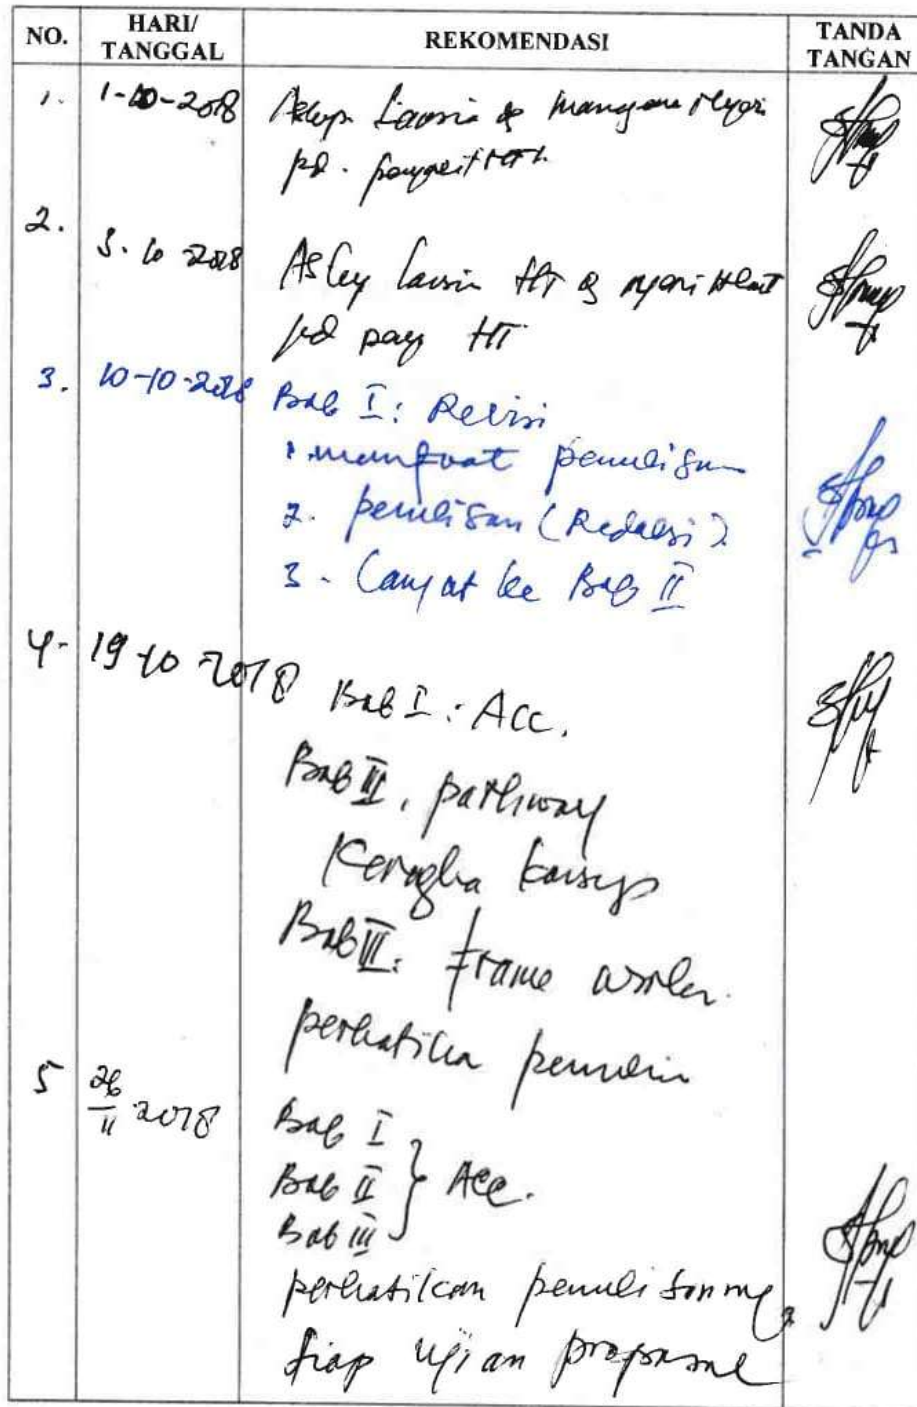 NO. HARI/ TANGGAL REKOMENDASI TANDA TANGAN
1. 1-10-2018 Askep Lansia dg manajemen Nyeri
pd.
2. 3-10-2018 Askep Lansia HT dg nyeri Akut
pd HT
3. 10-10-2018 Bab I: Revisi
1. manfaat penulisan
2. penulisan (Redaksi)
3. Lanjut ke Bab II
4. 19-10-2018 Bab I: Acc.
Bab II, pathway
Kerangka konsep
Bab III: Frame work.
perhatikan
5 26/11 2018 Bab I
Bab II } Acc.
Bab III
perhatikan penulisannya
siap ujian proposal